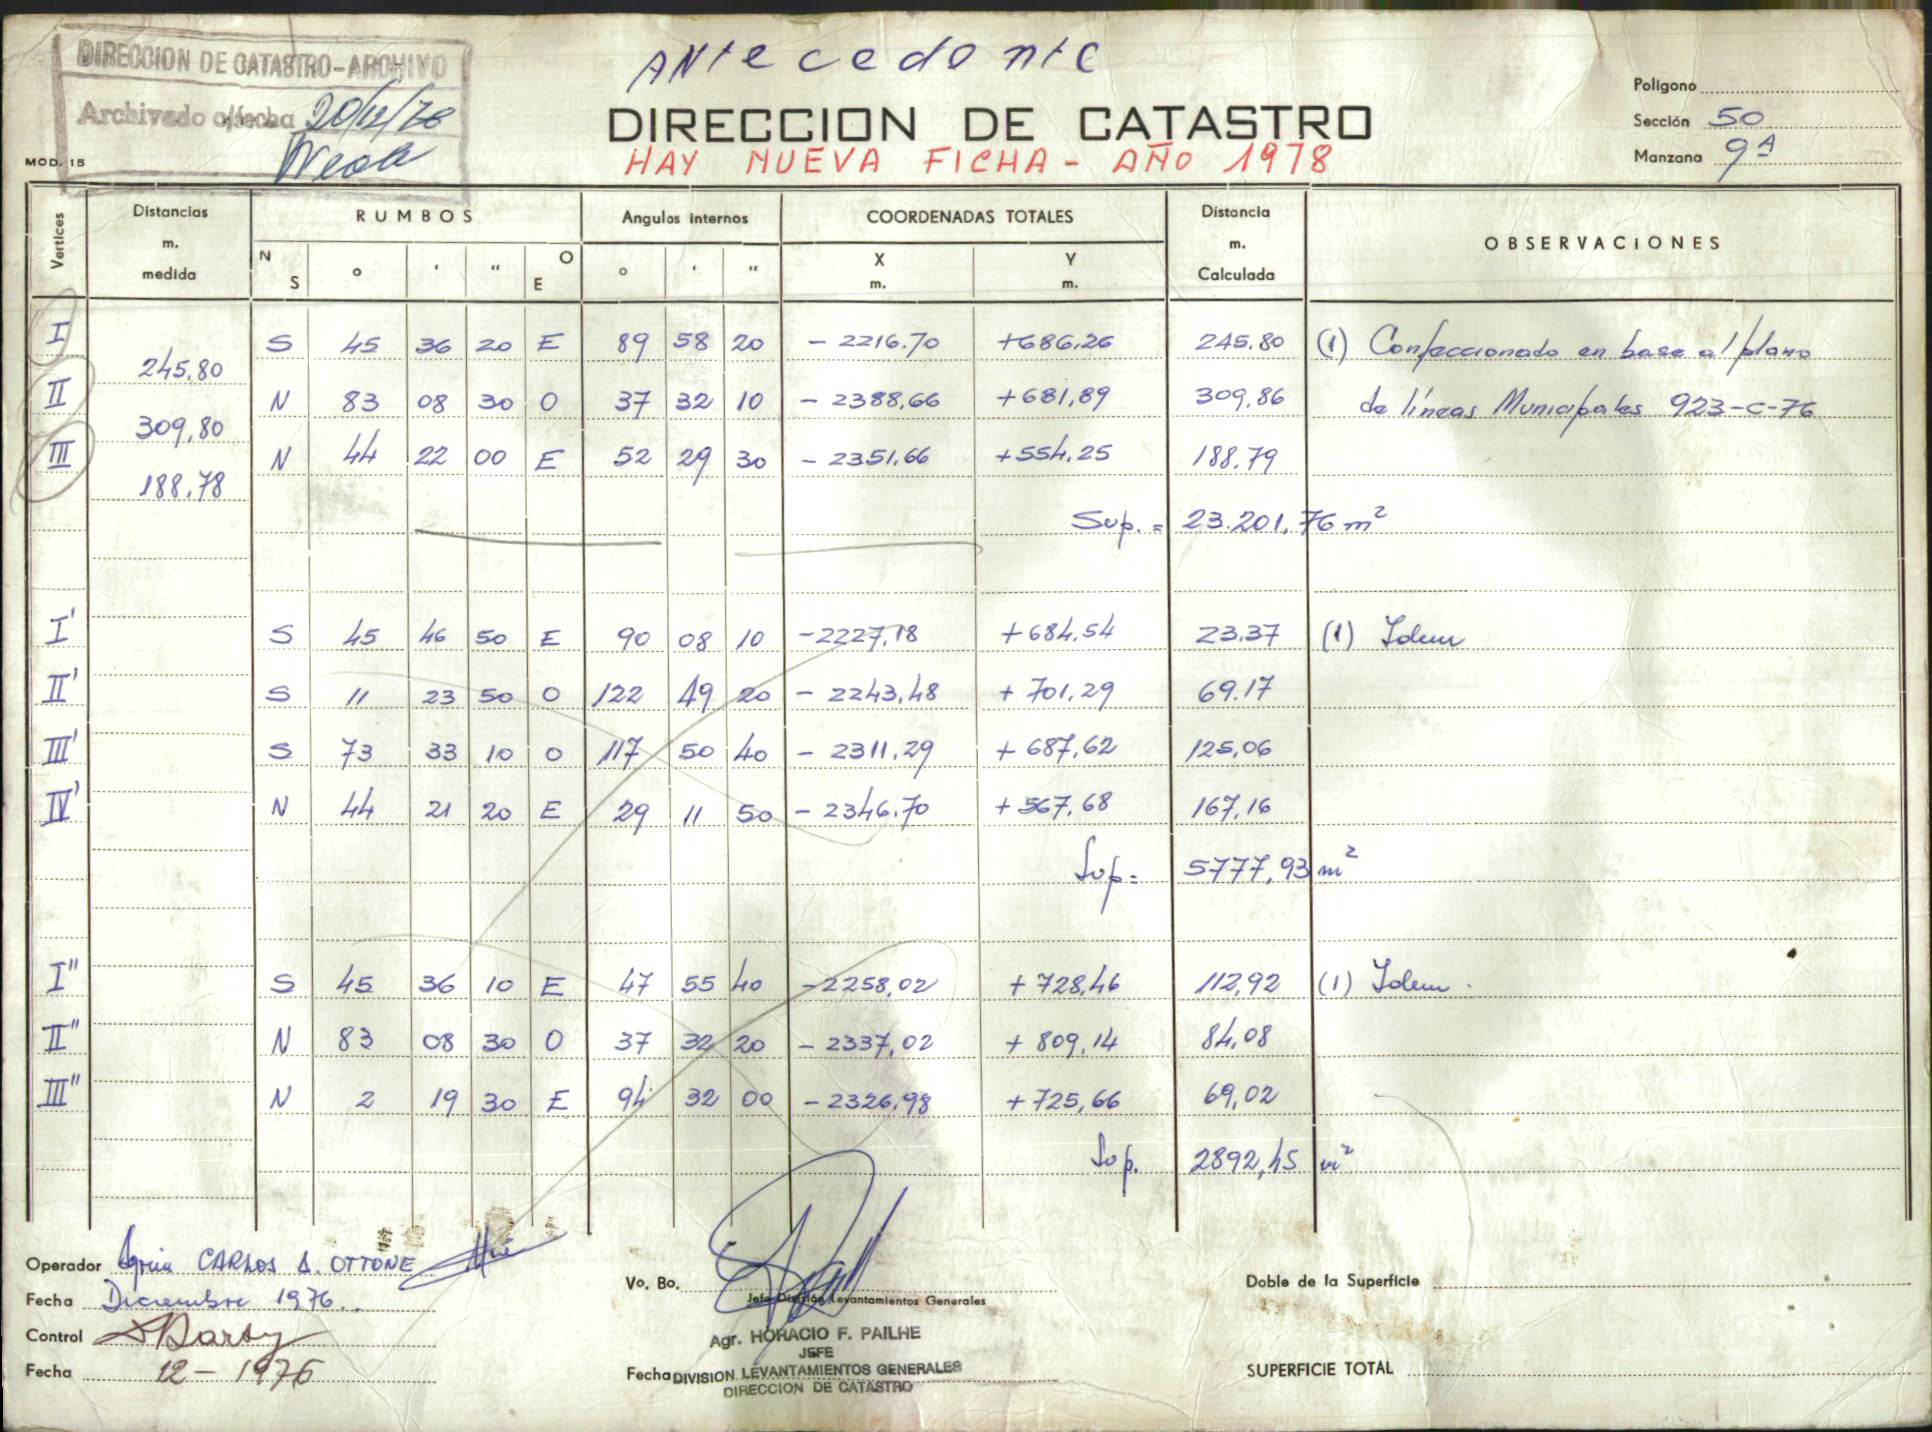 DIRECCION DE CATASTRO-ARCHIVO
Archivado c/fecha
Antecedente
DIRECCION DE CATASTRO
HAY NUEVA FICHA - AÑO 1978
MOD. 15
Polígono
Sección 50
Manzana 9A
Vertices
Distancias m. medida
RUMBOS
Angulos internos
COORDENADAS TOTALES
Distancia m. Calculada
OBSERVACIONES
N S ° ' " O E ° ' " X m. Y m.
I S 45 36 20 E 89 58 20 - 2216.70 +686.26 245.80 (1) Confeccionado en base al plano
245.80
II N 83 08 30 O 37 32 10 - 2388,66 +681,89 309,86 de líneas Municipales 923-C-76
309,80
III N 44 22 00 E 52 29 30 - 2351.66 +554,25 188.79
188.78
Sup. = 23.201,76 m²
I' S 45 46 50 E 90 08 10 -2227,18 +684.54 23.37 (1) Idem
II' S 11 23 50 O 122 49 20 - 2243,48 + 701,29 69.17
III' S 73 33 10 O 117 50 40 - 2311,29 + 687,62 125,06
IV' N 44 21 20 E 29 11 50 - 2346.70 +567,68 167,16
Sup= 5777,93 m²
I" S 45 36 10 E 47 55 40 -2258,02 + 728,46 112,92 (1) Idem.
II" N 83 08 30 O 37 32 20 - 2337,02 + 809,14 84,08
III" N 2 19 30 E 94 32 00 -2326,98 +725,66 69,02
Sup. 2892,45 m²
Operador CARLOS A. OTTONE
Fecha Diciembre 1976..
Control
Fecha 12-1976
Vo. Bo.
Jefe División Levantamientos Generales
Agr. HORACIO F. PAILHE
JEFE
Fecha DIVISION LEVANTAMIENTOS GENERALES
DIRECCION DE CATASTRO
Doble de la Superficie
SUPERFICIE TOTAL